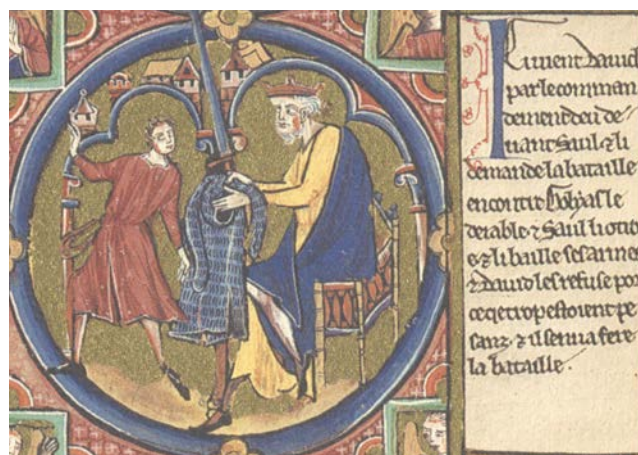 I ci vient dauid
par le comman
dement deu de
uant Saul ⁊ li
demande la bataille
encontre Golyas le
deiable ⁊ Saul li otri
e ⁊ li baille ses armes
⁊ dauid les refuse por
ce qe trop estoient pe
sanz ⁊ il sen ua fere
la bataille.